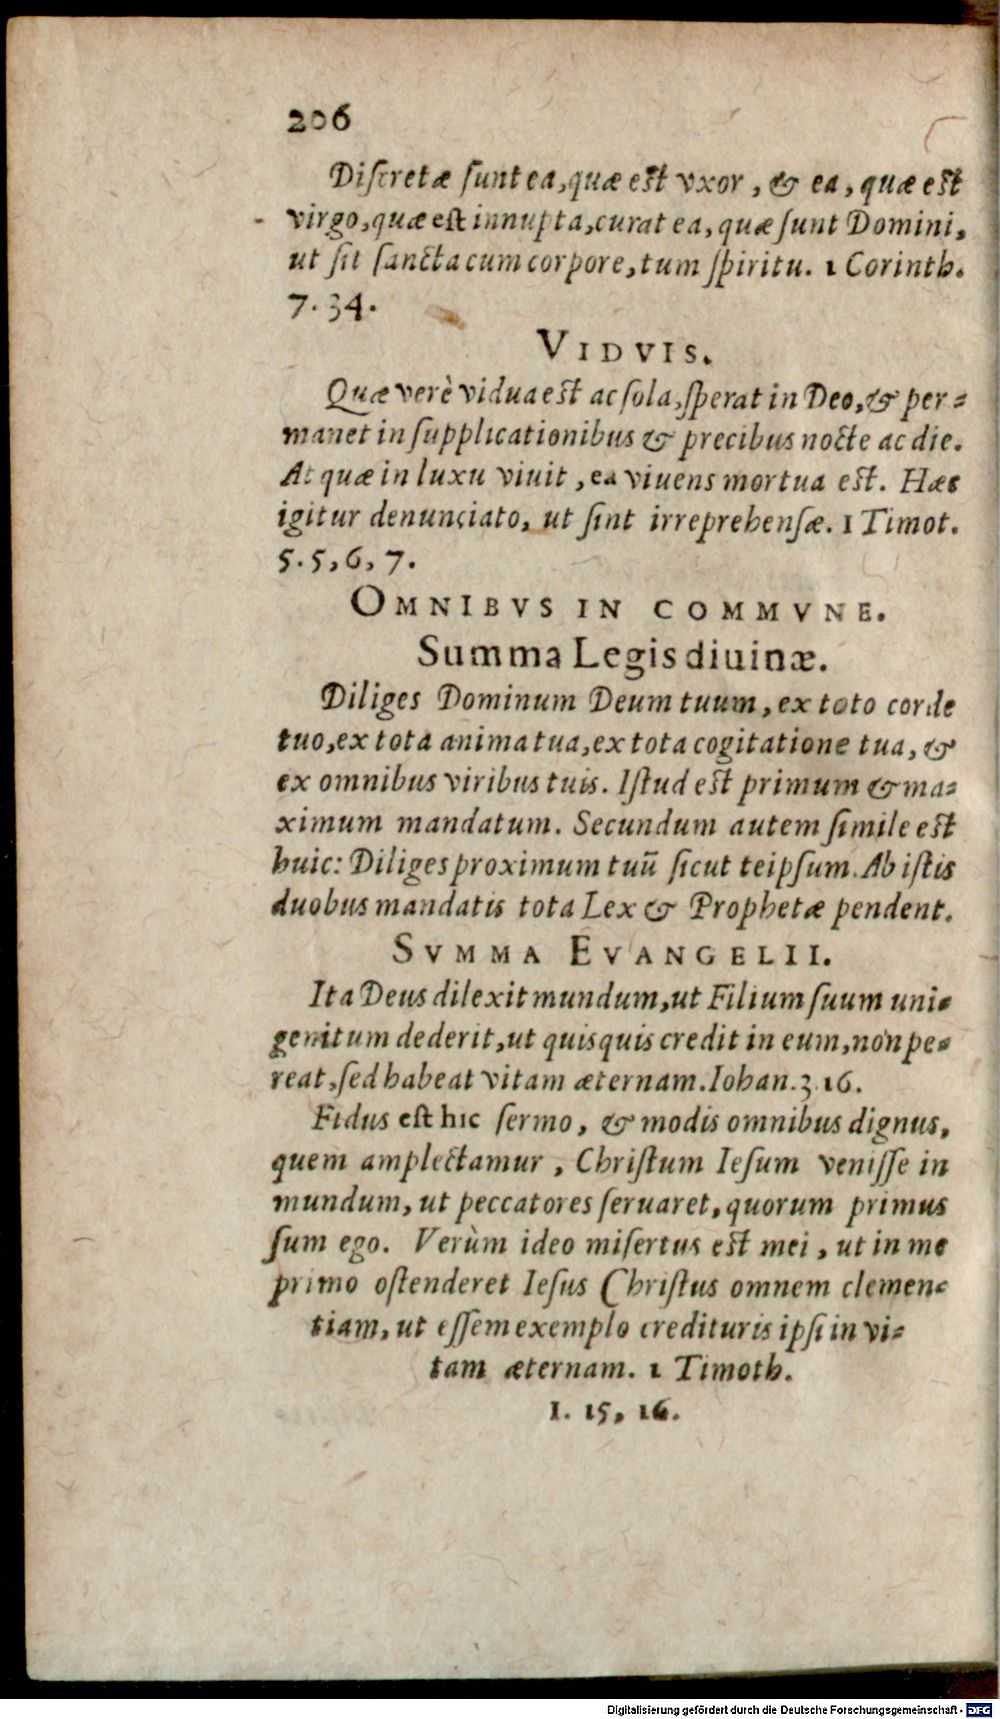 206
Diſcretæ ſunt ea, quæ eſt vxor, & ea, quæ eſt
virgo, quæ eſt innupta, curat ea, quæ ſunt Domini,
ut ſit ſancta cum corpore, tum ſpiritu. 1 Corinth.
7. 34.
VIDVIS.
Quæ verè vidua eſt ac ſola, ſperat in Deo, & per-
manet in ſupplicationibus & precibus nocte ac die.
At quæ in luxu viuit, ea viuens mortua eſt. Hæc
igitur denunciato, ut ſint irreprehenſæ. 1 Timot.
5. 5, 6, 7.
OMNIBVS IN COMMVNE.
Summa Legis diuinæ.
Diliges Dominum Deum tuum, ex toto corde
tuo, ex tota anima tua, ex tota cogitatione tua, &
ex omnibus viribus tuis. Iſtud eſt primum & ma-
ximum mandatum. Secundum autem ſimile eſt
huic: Diliges proximum tuū ſicut teipſum. Ab iſtis
duobus mandatis tota Lex & Prophetæ pendent.
SVMMA EVANGELII.
Ita Deus dilexit mundum, ut Filium ſuum uni-
genitum dederit, ut quisquis credit in eum, non pe-
reat, ſed habeat vitam æternam. Iohan. 3 16.
Fidus eſt hic ſermo, & modis omnibus dignus,
quem amplectamur, Chriſtum Ieſum veniſſe in
mundum, ut peccatores ſeruaret, quorum primus
ſum ego. Verùm ideo miſertus eſt mei, ut in me
primo oſtenderet Ieſus Chriſtus omnem clemen-
tiam, ut eſſem exemplo credituris ipſi in vi-
tam æternam. 1 Timoth.
1. 15, 16.
Digitalisierung gefördert durch die Deutsche Forschungsgemeinschaft - DFG